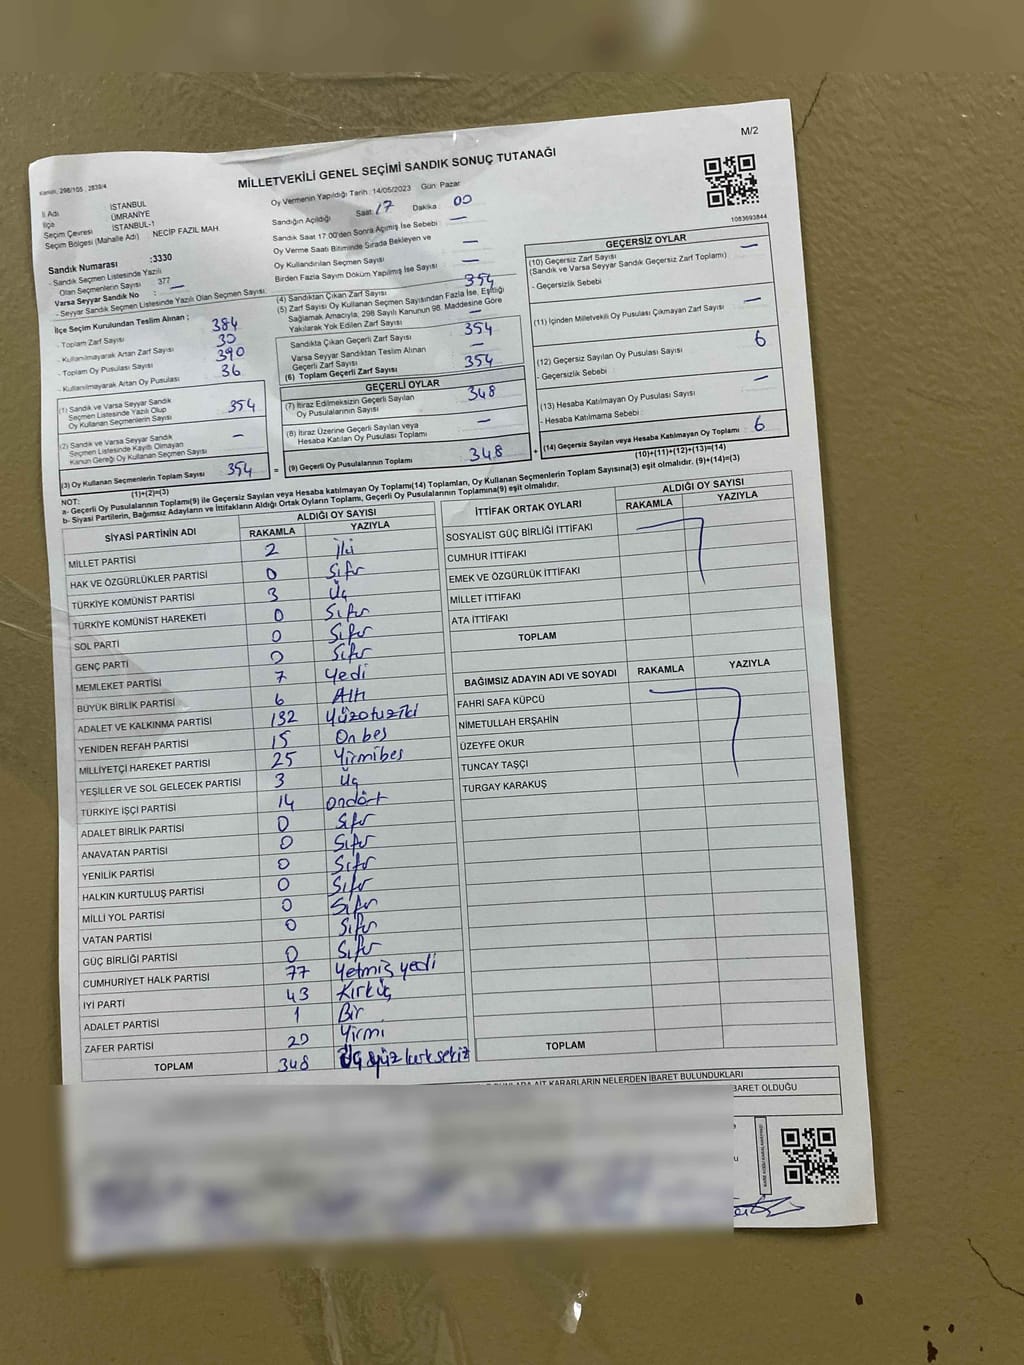 M/2
MİLLETVEKİLİ GENEL SEÇİMİ SANDIK SONUÇ TUTANAĞI
Kanun, 298/105 , 2839/4
1083693844
İl Adı İSTANBUL
İlçe ÜMRANİYE
Seçim Çevresi İSTANBUL-1
Seçim Bölgesi (Mahalle Adı) NECİP FAZIL MAH.
Sandık Numarası :3330
- Sandık Seçmen Listesinde Yazılı
Olan Seçmenlerin Sayısı 377
Varsa Seyyar Sandık No : —
- Seyyar Sandık Seçmen Listesinde Yazılı Olan Seçmen Sayısı:
İlçe Seçim Kurulundan Teslim Alınan ;
- Toplam Zarf Sayısı 384
- Kullanılmayarak Artan Zarf Sayısı 30
- Toplam Oy Pusulası Sayısı 390
- Kullanılmayarak Artan Oy Pusulası 36
(1) Sandık ve Varsa Seyyar Sandık
Seçmen Listesinde Yazılı Olup
Oy Kullanan Seçmenlerin Sayısı 354
(2) Sandık ve Varsa Seyyar Sandık
Seçmen Listesinde Kayıtlı Olmayan
Kanun Gereği Oy Kullanan Seçmen Sayısı —
(3) Oy Kullanan Seçmenlerin Toplam Sayısı 354
(1)+(2)=(3)
Oy Vermenin Yapıldığı Tarih : 14/05/2023 Gün: Pazar
Sandığın Açıldığı Saat : 17 Dakika : 00
Sandık Saat 17:00'den Sonra Açılmış İse Sebebi : —
Oy Verme Saati Bitiminde Sırada Bekleyen ve
Oy Kullandırılan Seçmen Sayısı —
Birden Fazla Sayım Döküm Yapılmış İse Sayısı —
(4) Sandıktan Çıkan Zarf Sayısı 354
(5) Zarf Sayısı Oy Kullanan Seçmen Sayısından Fazla İse, Eşitliği
Sağlamak Amacıyla, 298 Sayılı Kanunun 98. Maddesine Göre
Yakılarak Yok Edilen Zarf Sayısı —
Sandıkta Çıkan Geçerli Zarf Sayısı 354
Varsa Seyyar Sandıktan Teslim Alınan
Geçerli Zarf Sayısı —
(6) Toplam Geçerli Zarf Sayısı 354
GEÇERLİ OYLAR
(7) İtiraz Edilmeksizin Geçerli Sayılan
Oy Pusulalarının Sayısı 348
(8) İtiraz Üzerine Geçerli Sayılan veya
Hesaba Katılan Oy Pusulası Toplamı —
= (9) Geçerli Oy Pusulalarının Toplamı 348 +
GEÇERSİZ OYLAR
(10) Geçersiz Zarf Sayısı —
(Sandık ve Varsa Seyyar Sandık Geçersiz Zarf Toplamı)
- Geçersizlik Sebebi
(11) İçinden Milletvekili Oy Pusulası Çıkmayan Zarf Sayısı —
(12) Geçersiz Sayılan Oy Pusulası Sayısı 6
- Geçersizlik Sebebi :
(13) Hesaba Katılmayan Oy Pusulası Sayısı —
- Hesaba Katılmama Sebebi :
(14) Geçersiz Sayılan veya Hesaba Katılmayan Oy Toplamı 6
(10)+(11)+(12)+(13)=(14)
NOT:
a- Geçerli Oy Pusulalarının Toplamı(9) ile Geçersiz Sayılan veya Hesaba katılmayan Oy Toplamı(14) Toplamları, Oy Kullanan Seçmenlerin Toplam Sayısına(3) eşit olmalıdır. (9)+(14)=(3)
b- Siyasi Partilerin, Bağımsız Adayların ve İttifakların Aldığı Ortak Oyların Toplamı, Geçerli Oy Pusulalarının Toplamına(9) eşit olmalıdır.
SİYASİ PARTİNİN ADI ALDIĞI OY SAYISI
RAKAMLA YAZIYLA
MİLLET PARTİSİ 2 İki
HAK VE ÖZGÜRLÜKLER PARTİSİ 0 Sıfır
TÜRKİYE KOMÜNİST PARTİSİ 3 Üç
TÜRKİYE KOMÜNİST HAREKETİ 0 Sıfır
SOL PARTİ 0 Sıfır
GENÇ PARTİ 0 Sıfır
MEMLEKET PARTİSİ 7 Yedi
BÜYÜK BİRLİK PARTİSİ 6 Altı
ADALET VE KALKINMA PARTİSİ 132 Yüzotuziki
YENİDEN REFAH PARTİSİ 15 Onbeş
MİLLİYETÇİ HAREKET PARTİSİ 25 Yirmibeş
YEŞİLLER VE SOL GELECEK PARTİSİ 3 Üç
TÜRKİYE İŞÇİ PARTİSİ 14 ondört
ADALET BİRLİK PARTİSİ 0 Sıfır
ANAVATAN PARTİSİ 0 Sıfır
YENİLİK PARTİSİ 0 Sıfır
HALKIN KURTULUŞ PARTİSİ 0 Sıfır
MİLLİ YOL PARTİSİ 0 Sıfır
VATAN PARTİSİ 0 Sıfır
GÜÇ BİRLİĞİ PARTİSİ 0 Sıfır
CUMHURİYET HALK PARTİSİ 77 Yetmiş yedi
İYİ PARTİ 43 Kırküç
ADALET PARTİSİ 1 Bir
ZAFER PARTİSİ 20 Yirmi
TOPLAM 348 Üç yüz kırk sekiz
İTTİFAK ORTAK OYLARI ALDIĞI OY SAYISI
RAKAMLA YAZIYLA
SOSYALİST GÜÇ BİRLİĞİ İTTİFAKI
CUMHUR İTTİFAKI
EMEK VE ÖZGÜRLÜK İTTİFAKI
MİLLET İTTİFAKI
ATA İTTİFAKI
TOPLAM
BAĞIMSIZ ADAYIN ADI VE SOYADI RAKAMLA YAZIYLA
FAHRİ SAFA KÜPCÜ
NİMETULLAH ERŞAHİN
ÜZEYFE OKUR
TUNCAY TAŞÇI
TURGAY KARAKUŞ
TOPLAM
AİT KARARLARIN NELERDEN İBARET BULUNDUKLARI
İBARET OLDUĞU